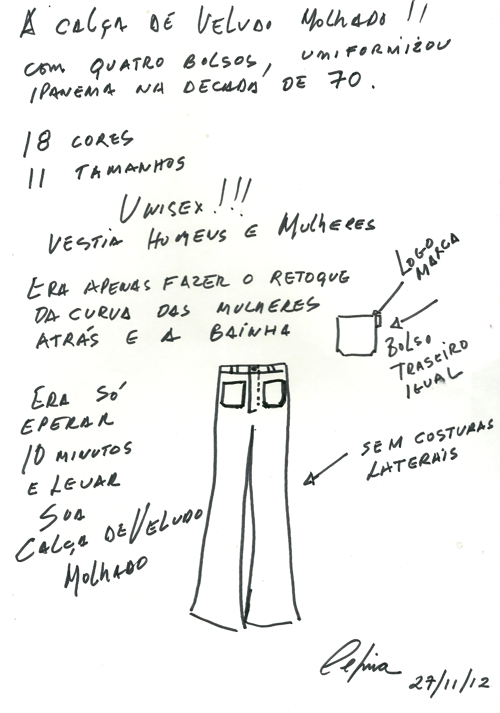 A CALÇA DE VELUDO MOLHADO!!
COM QUATRO BOLSOS, UNIFORMIZOU
IPANEMA NA DECADA DE 70.
18 CORES
11 TAMANHOS
UNISEX!!!
VESTIA HOMENS E MULHERES
ERA APENAS FAZER O RETOQUE
DA CURVA DAS MULHERES
ATRÁS E A BAINHA
LOGO
MARCA
BOLSO
TRASEIRO
IGUAL
ERA SÓ
EPERAR
10 MINUTOS
E LEVAR
SUA
CALÇA DE VELUDO
MOLHADO
SEM COSTURAS
LATERAIS
27/11/12